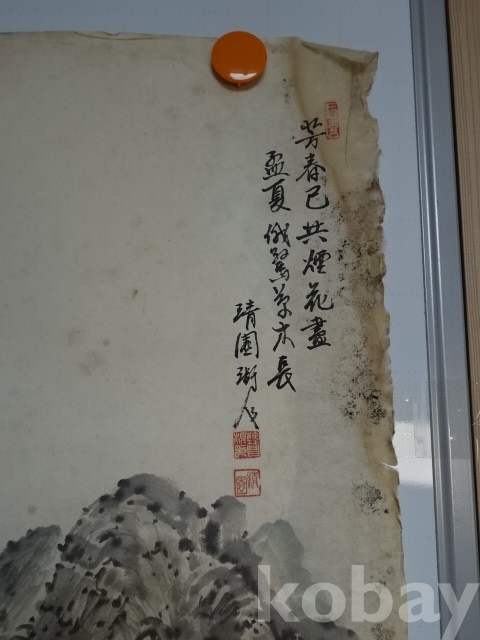 芳春已共煙花盡
孟夏俄驚草木長
靖園街人
kobay